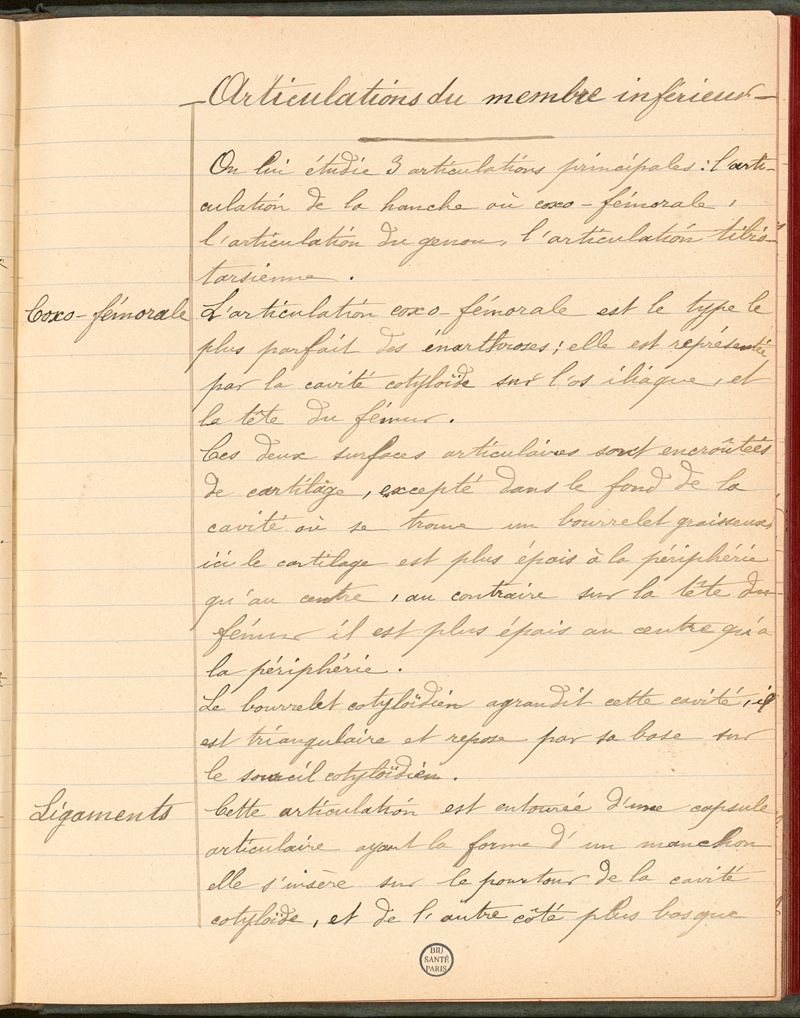 Articulations du membre inférieur
On lui étudie 3 articulations principales : l'arti-
culation de la hanche où coxo-fémorale,
l'articulation du genou, l'articulation tibio-
tarsienne.
Coxo-fémorale
L'articulation coxo-fémorale est le type le
plus parfait des énarthroses ; elle est représentée
par la cavité cotyloïde sur l'os iliaque, et
la tête du fémur.
Ces deux surfaces articulaires sont encroûtées
de cartilage, excepté dans le fond de la
cavité où se trouve un bourrelet graisseux
ici le cartilage est plus épais à la périphérie
qu'au centre, au contraire sur la tête du
fémur il est plus épais au centre qu'a
la périphérie.
Le bourrelet cotyloïdien agrandit cette cavité, il
est triangulaire et repose par sa base sur
le sourcil cotyloïdien.
Ligaments
Cette articulation est entourée d'une capsule
articulaire ayant la forme d'un manchon
elle s'insère sur le pourtour de la cavité
cotyloïde, et de l'autre côté plus bas que
BIU
SANTÉ
PARIS